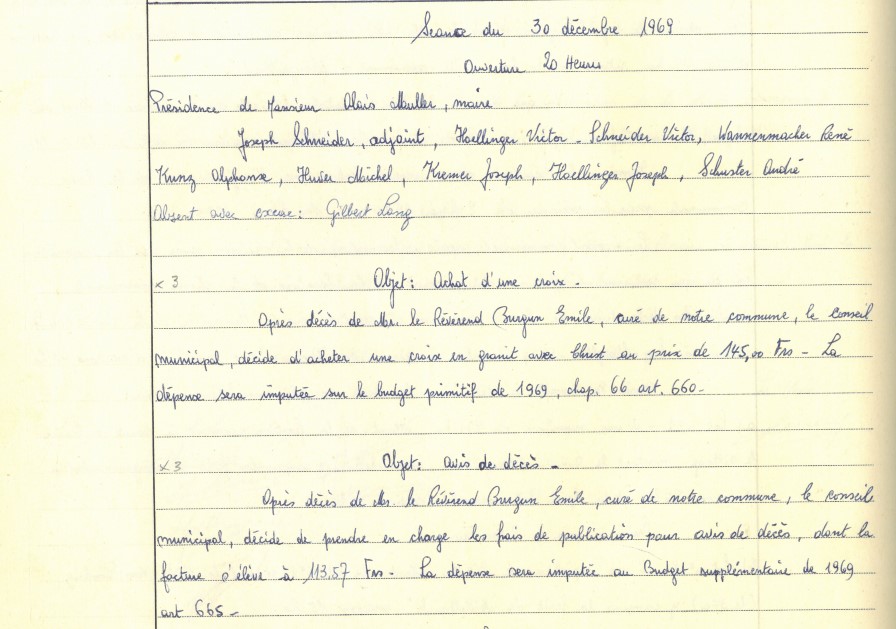 Seance du 30 décembre 1969
Ouverture 20 Heures
Présidence de Monsieur Aloïs Muller, maire
Joseph Schneider, adjoint, Hoellinger Victor - Schneider Victor, Wannenmacher René
Kunz Alphonse, Huver Michel, Kremer Joseph, Hoellinger Joseph, Schuster André
Absent avec excuse: Gilbert Lang
x 3 Objet: Achat d'une croix -
Après décès de Mr. le Révérend Burgun Emile, curé de notre commune, le conseil
municipal, décide d'acheter une croix en granit avec Christ au prix de 145,00 Frs - La
dépense sera imputée sur le budget primitif de 1969, chap. 66 art. 660 -
x 3 Objet: avis de décès -
Après décès de Mr. le Révérend Burgun Emile, curé de notre commune, le conseil
municipal, décide de prendre en charge les frais de publication pour avis de décès, dont la
facture s'élève à 113.57 Frs - La dépense sera imputée au Budget supplémentaire de 1969
art 665 -